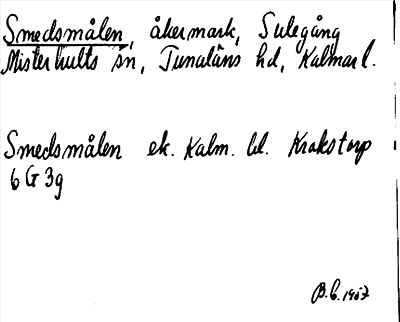 Smedsmålen, åkermark, Sulegång
Misterhults sn, Tunaläns hd, Kalmar l.
Smedsmålen ek. Kalm. bl. Krakstorp
6 G 3g
B.C. 1957